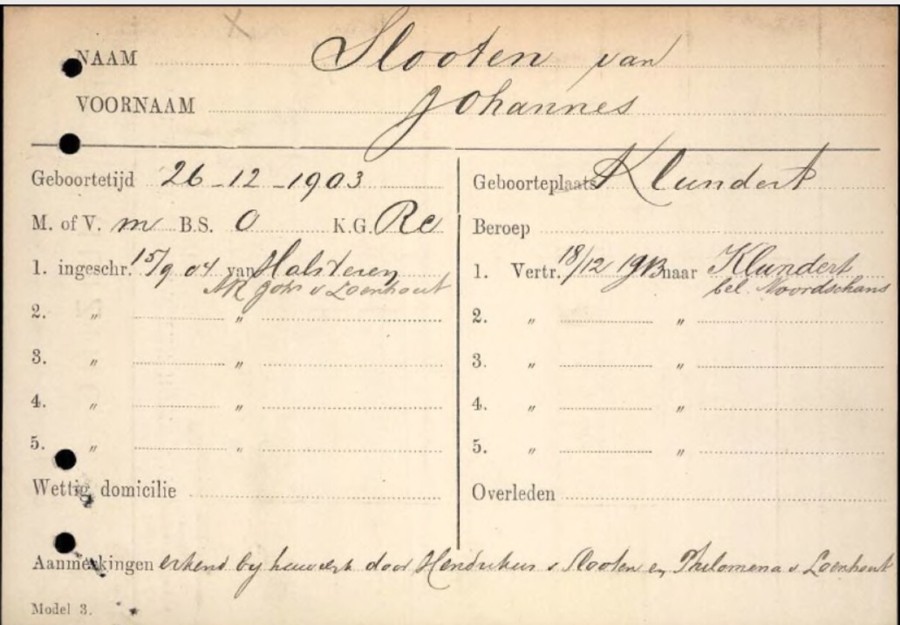 NAAM Slooten van
VOORNAAM Johannes
Geboortetijd 26-12-1903 Geboorteplaats Klundert
M. of V. m B.S. O K.G. Rc Beroep
1. ingeschr. 15/9 04 van Halsteren 1. Vertr. 18/12 1913 naar Klundert
v Loenhout bel. Noordschans
2. " " 2. " "
3. " " 3. " "
4. " " 4. " "
5. " " 5. " "
Wettig domicilie Overleden
Aanmerkingen erkend by huwelk door Hendrikus v Slooten en Philomena v Loenhout
Model 3.